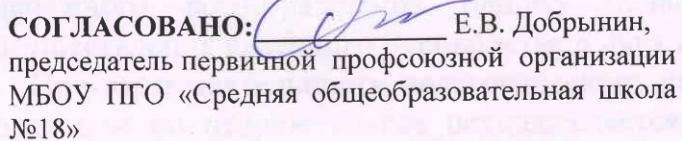 СОГЛАСОВАНО: Е.В. Добрынин,
председатель первичной профсоюзной организации
МБОУ ПГО «Средняя общеобразовательная школа
№18»